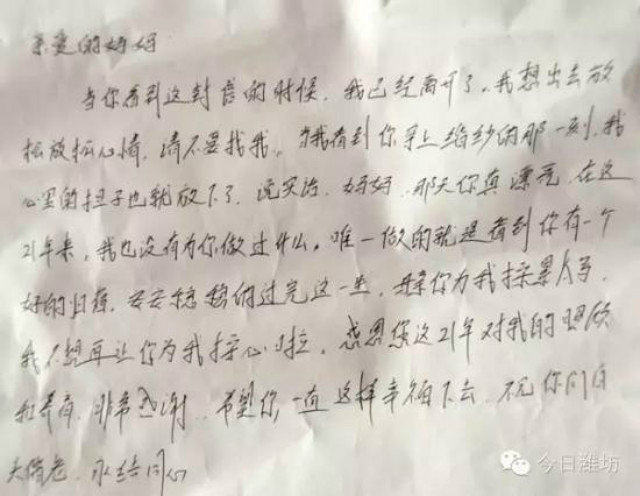 亲爱的妈妈
当你看到这封信的时候，我已经离开了。我想出去放
松放松心情，请不要找我。当我看到你穿上婚纱的那一刻，我
心里的担子也就放下了，说实话，妈妈，那天你真漂亮，在这
21年来，我也没有为你做过什么。唯一做的就是看到你有一个
好的归宿，安安稳稳的过完这一生，你为我操累太多，
我不想再让你为我操心啦，感恩您这21年对我的照顾
和养育，非常感谢，希望你一直这样幸福下去，祝你们白
头偕老，永结同心
今日潍坊